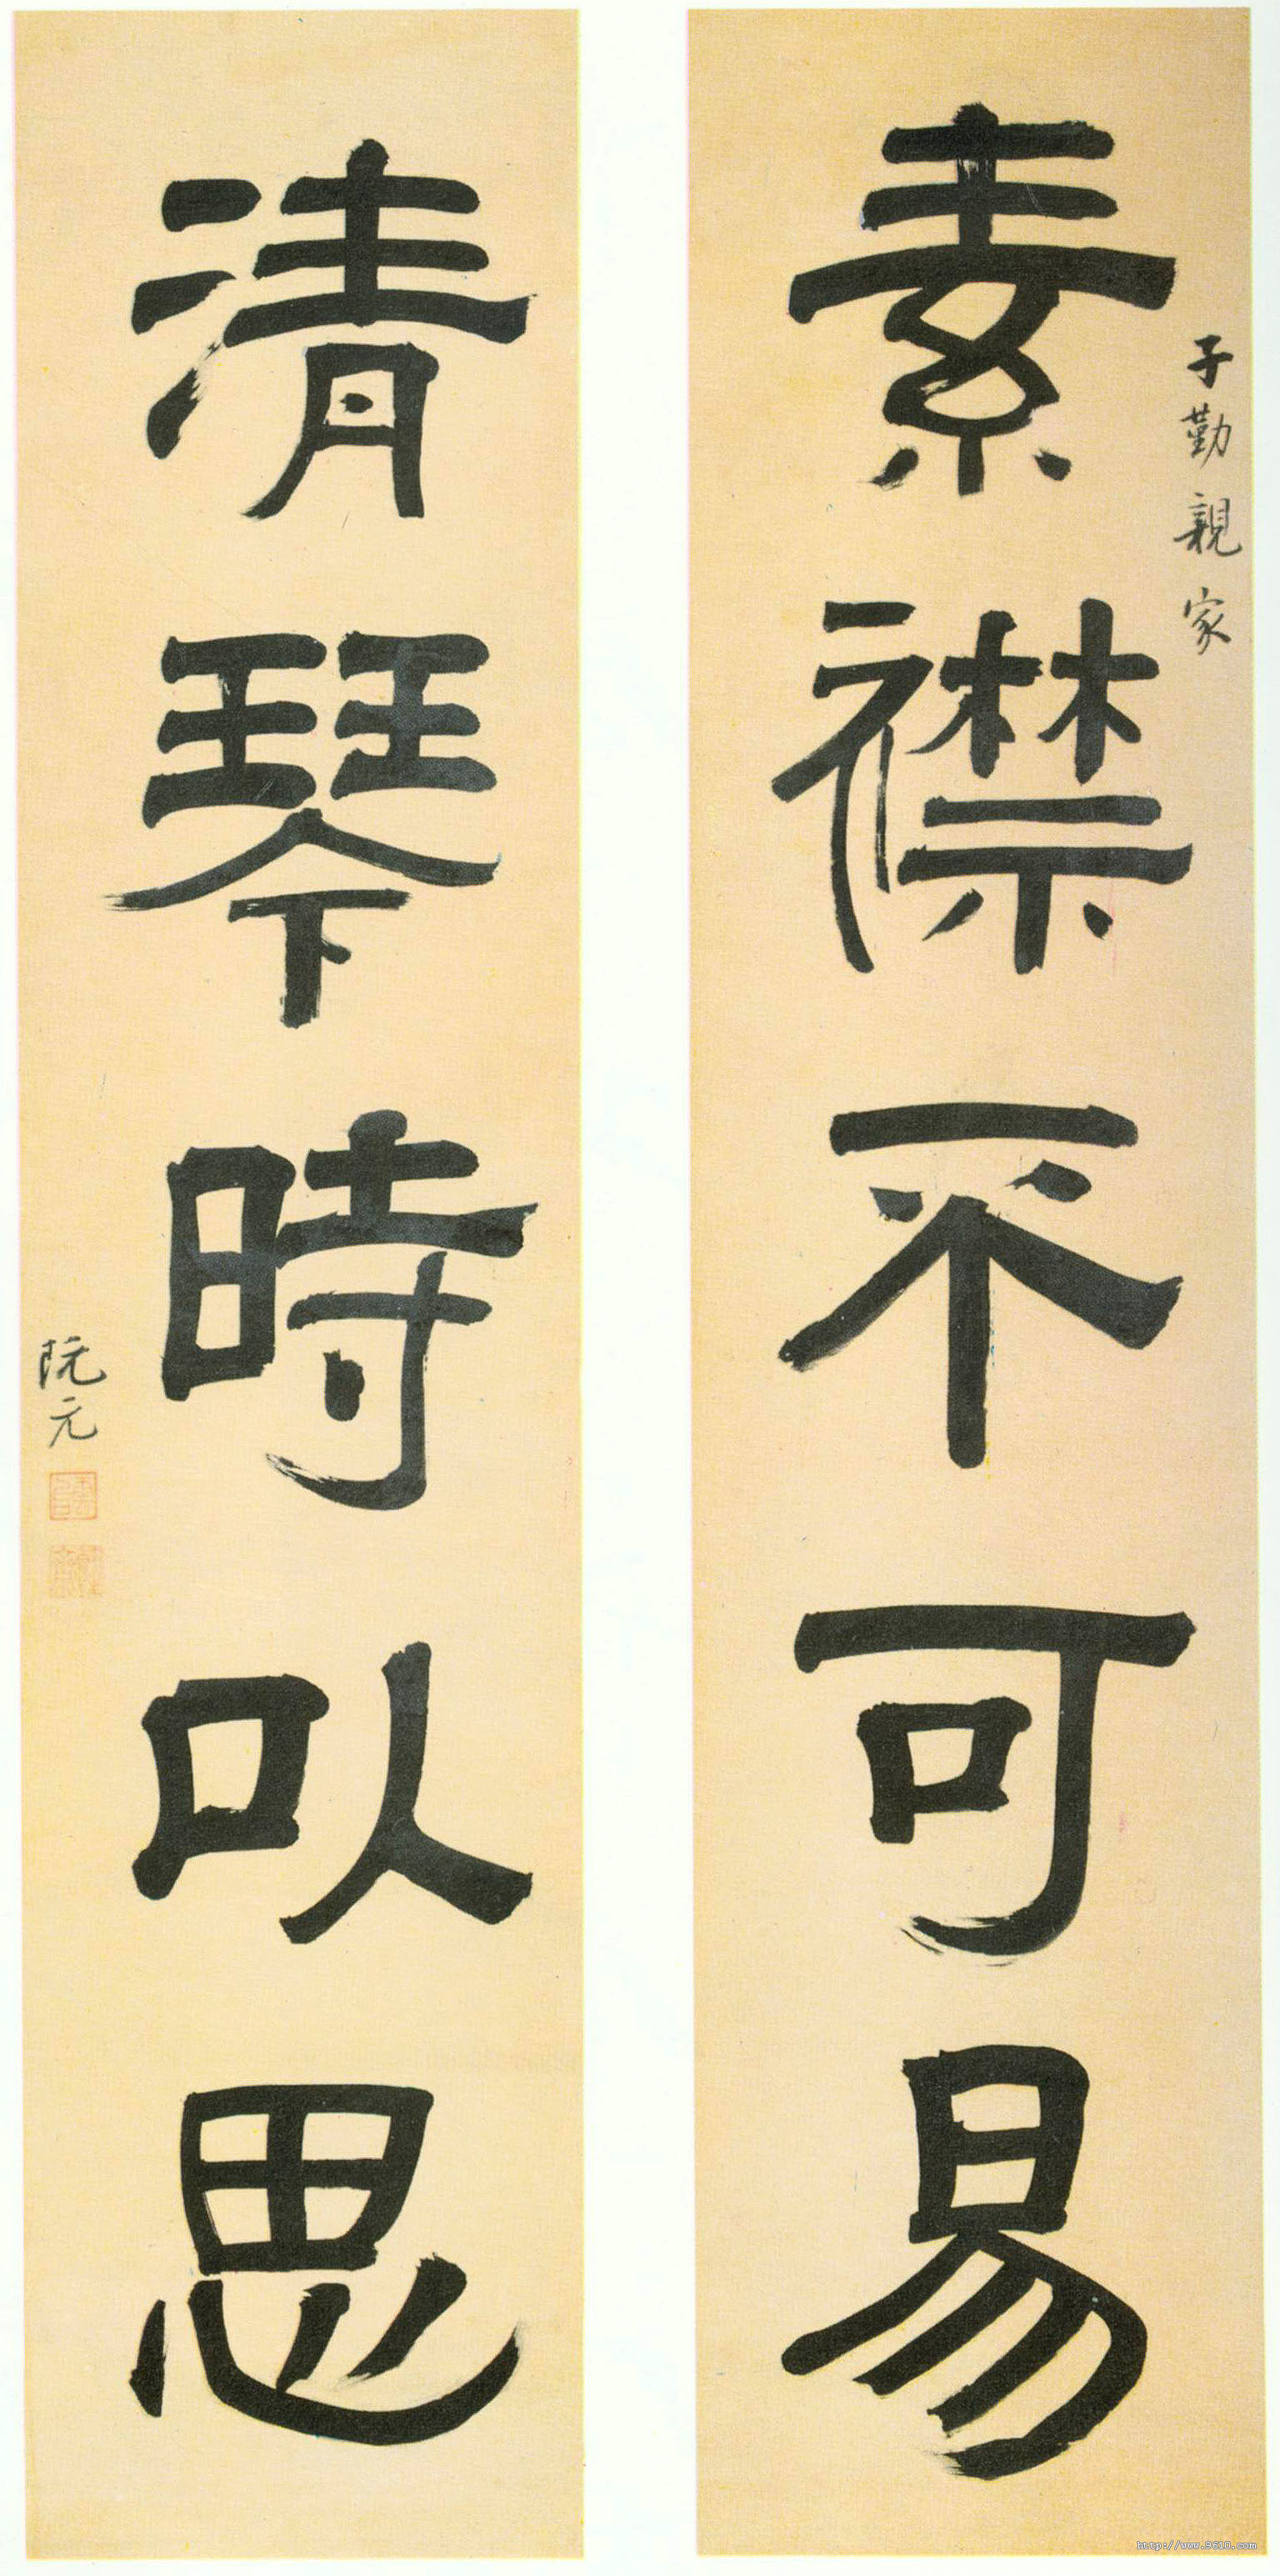 子勤親家
素襟不可易
清琴時以思
阮元
http://www.9610.com